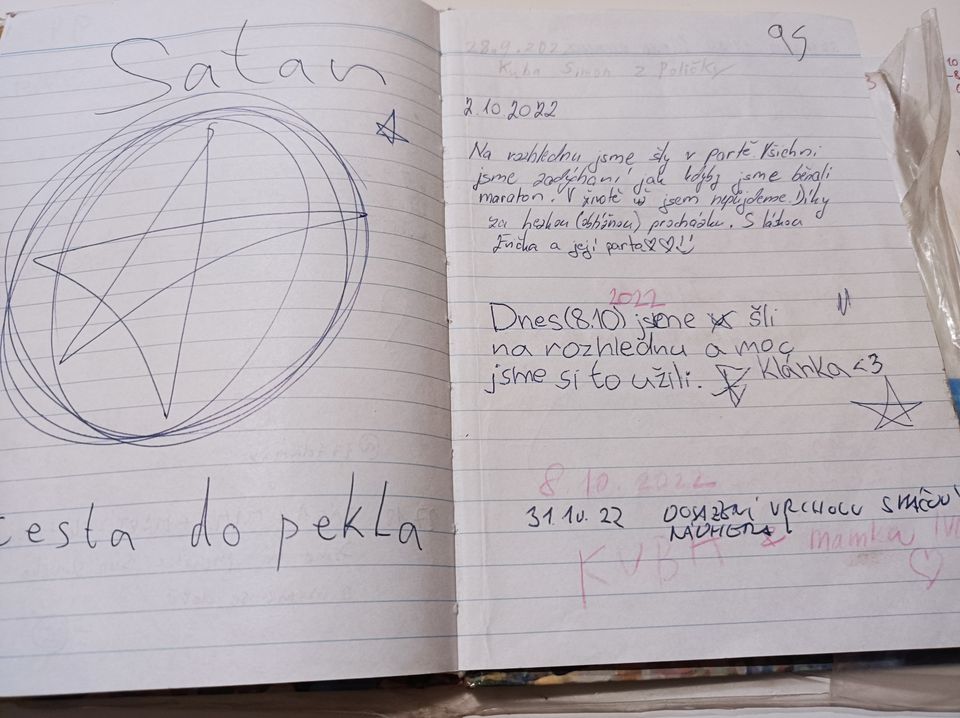 Satan
cesta do pekla
95
28.9.202
Kuba Šimon z Poličky
2.10.2022
Na rozhlednu jsme šly v partě Všichni
jsme zadýchání jak kdyby jsme běžali
maraton. V životě už jsem nepůjdeme. Díky
za hezkou procházku. S láskou
a její parta
2022
Dnes(8.10) jsme šli
na rozhlednu a moc
jsme si to užili. Klárka <3
8.10.2022
31.10.22 DOSAŽENÍ VRCHOLU
NÁDHERA!
KUBA & mamka